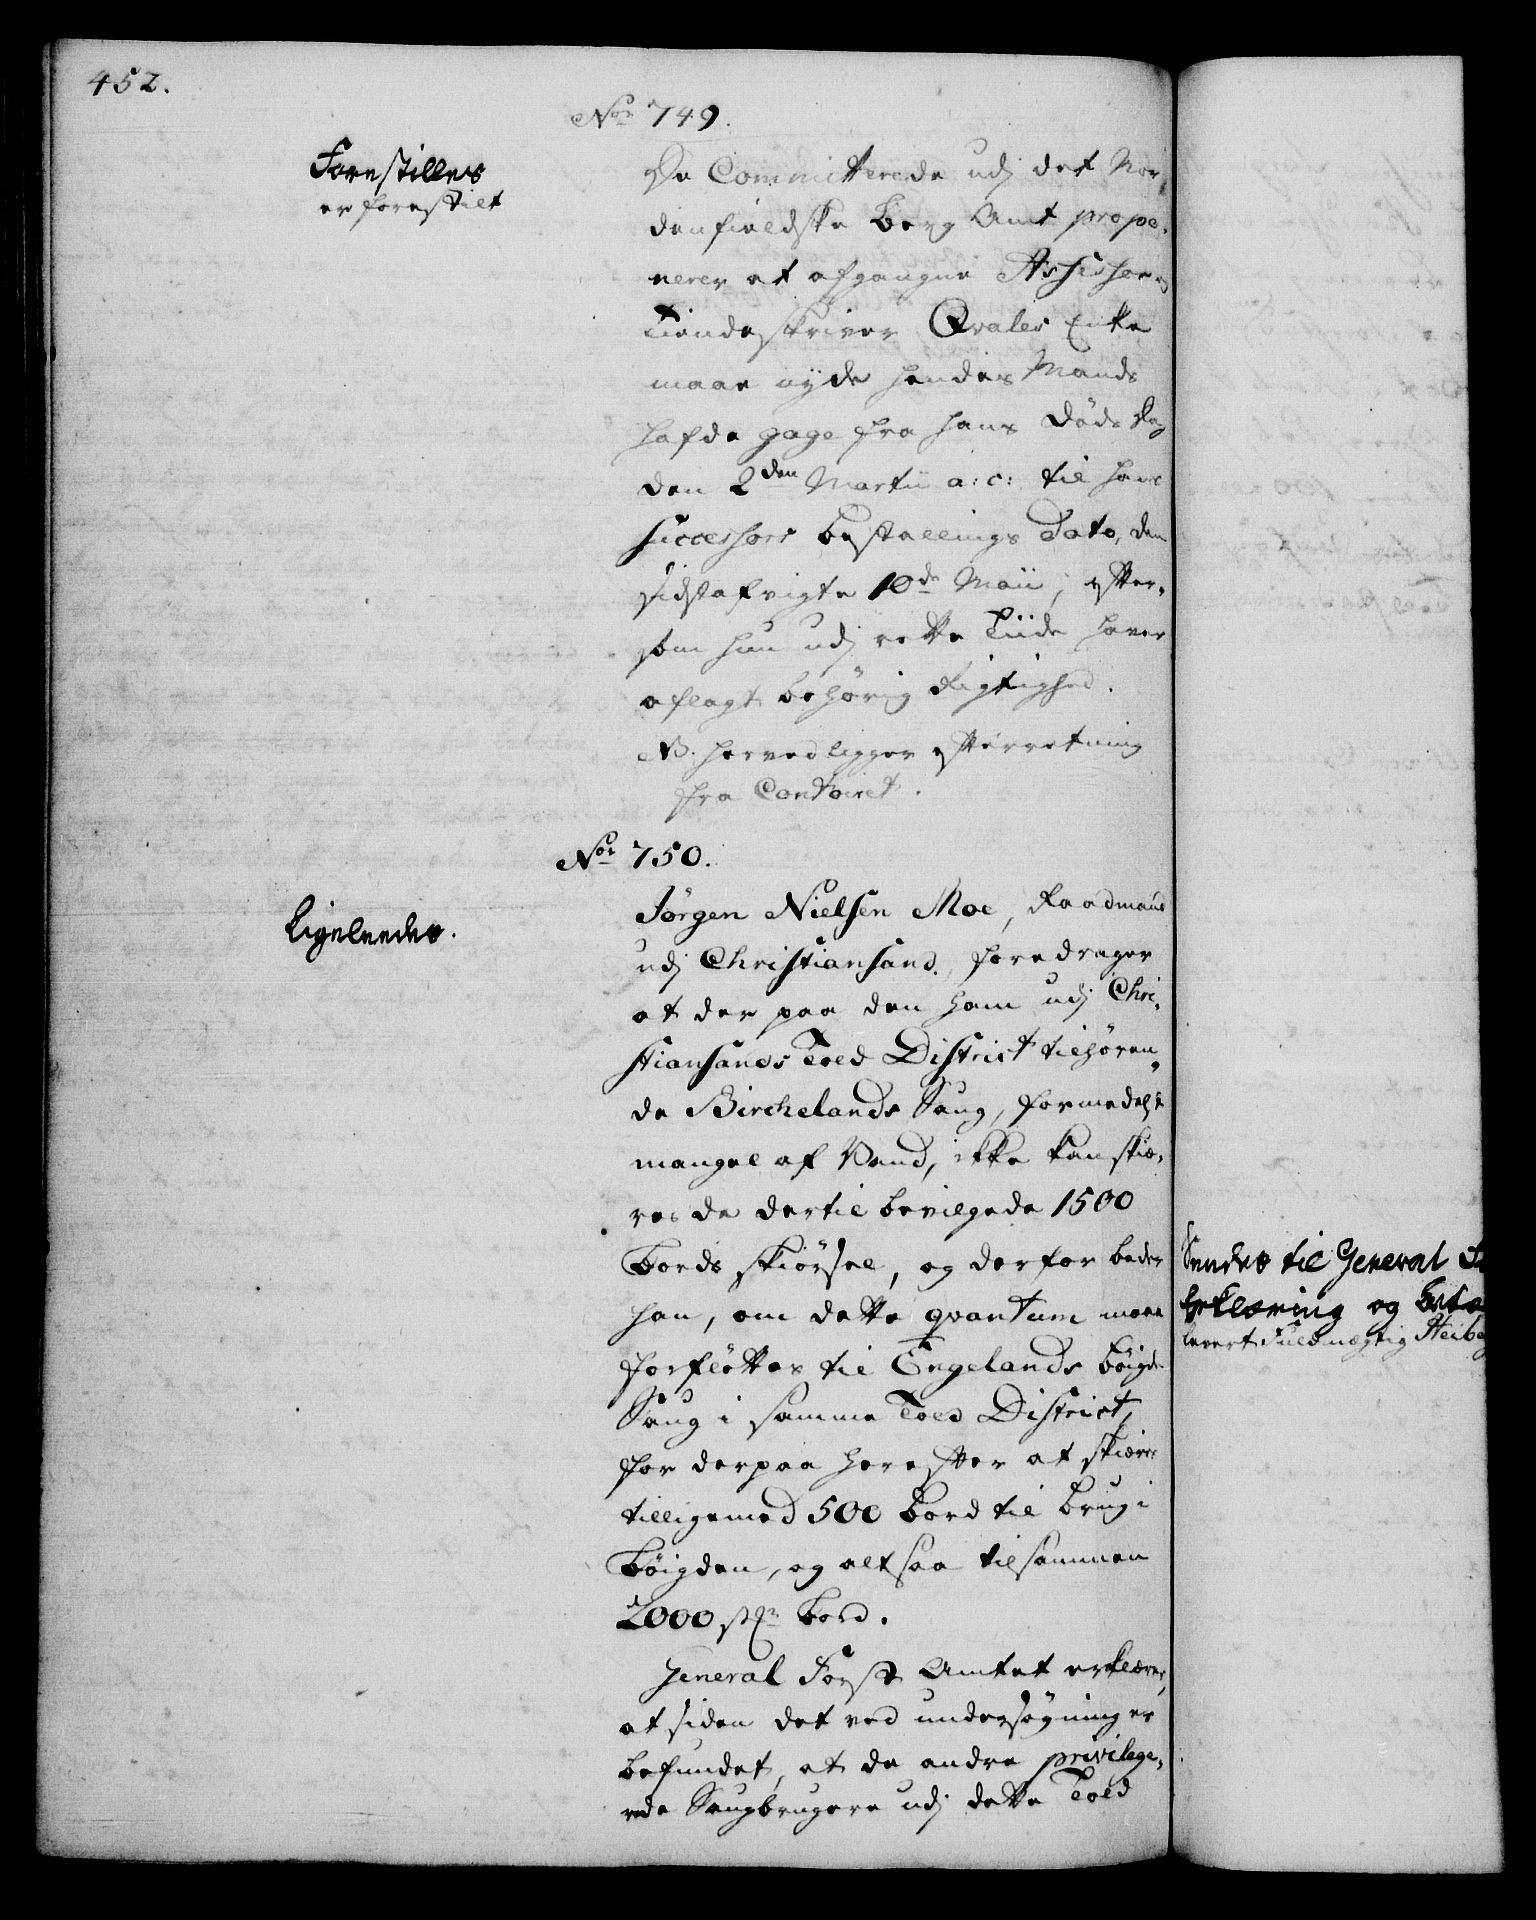 452.
Nor 749.
Forestilles
er forestilt
De Committerede udj det Nor,
denfieldske Berg Amt propo,
nerer at afgangne Assessor og
Tiendeskriver Qvales Enke
maae nyde hendes Mands
hafde gage fra hans Døds Dag
den 2den Martii a: c: til hans
Successors bestallings Dato, den
sidstafvigte 10de Maii, efter,
som hun udj rette Tiide haver
aflagt behørig Rigtighed.
NB. herved ligger efterretning
fra Contoiret.
Nor 750.
Ligeleedes.
Jörgen Nielsen Moe, Raadmand
udj Christiansand, foredrager
at der paa den ham udj Chri,
stiansands Told District tilhøren,
de Birchelands Saug, formedelst
mangel af Vand, ikke kan skiæ,
res de dertil bevilgede 1500
Bords skiørsel, og derfor beder
han, om dette qvantum maae
forfløttes til Engelands bøigde
Saug i samme Told District,
for derpaa herefter at skiæres
tilligemed 500 bord til brug i
bøigden, og altsaa tilsammen
2000 stkr bord.
General Forst Amtet erklærer,
at siden det ved undersøgning er
befundet, at de andre privilege,
rede Saugbrugere udj dette Told
Sendes til General
Erklæring og
levert Fuldmægtig Heibe